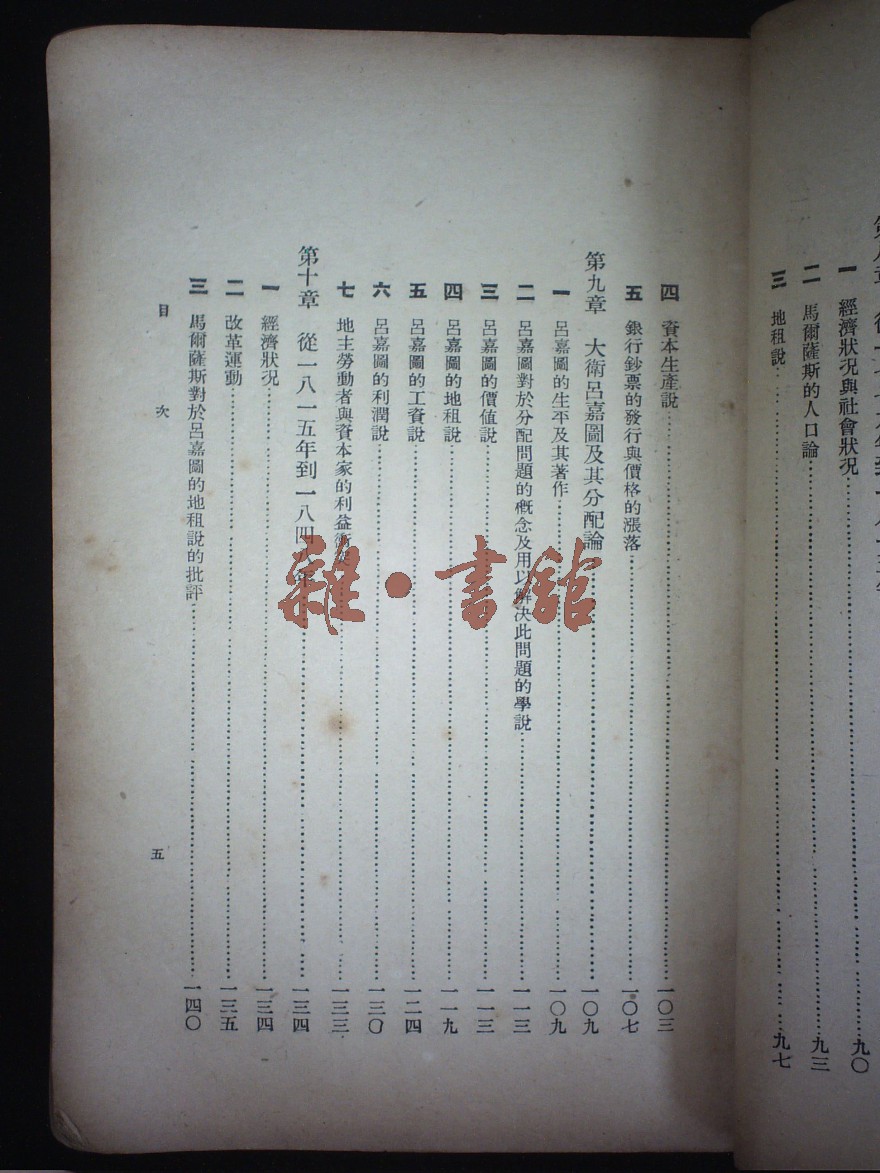 一 經濟狀況與社會狀況 九〇
二 馬爾薩斯的人口論 九三
三 地租說 九七
四 資本生產說 一〇三
五 銀行鈔票的發行與價格的漲落 一〇七
第九章 大衛呂嘉圖及其分配論 一〇九
一 呂嘉圖的生平及其著作 一〇九
二 呂嘉圖對於分配問題的槪念及用以解決此問題的學說 一一三
三 呂嘉圖的價值說 一一三
四 呂嘉圖的地租說 一一九
五 呂嘉圖的工資說 一二四
六 呂嘉圖的利潤說 一三〇
七 地主勞動者與資本家的利益衝突 一三三
第十章 從一八一五年到一八四八年 一三四
一 經濟狀況 一三四
二 改革運動 一三五
三 馬爾薩斯對於呂嘉圖的地租說的批評 一四〇
目次
五
雜·書館